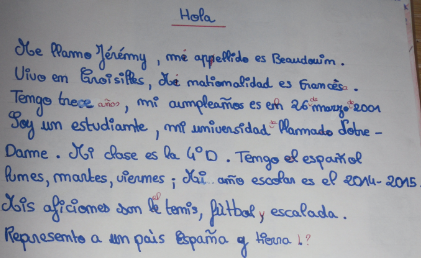 Hola
Me llamo Jérémy, mé appellido es Beaudouin.
Vivo em Croisilles, Mé nationalidad es francés.
Tengo trece años, mi cumpleaños es em 26 de marzo de 2001
Soy um estudiamte, mi universidad llamado Notre-
Dame. Mi clase es la 4°D. Tengo el español
lumes, martes, viernes; Mi año escolar es el 2014-2015.
Mis aficiones son le tenis, fútbol y escalada.
Represento a um país España y tierra !?